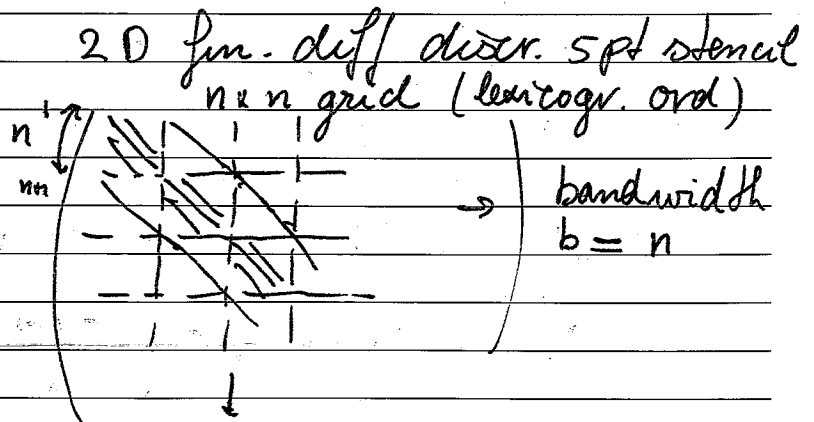 2D fin. diff discr. 5pt stencil
n x n grid (lexicogr. ord)
1
n
n+1
→ bandwidth
b = n